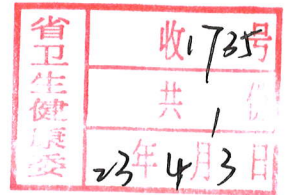 省卫生健康委
收1735号
共1份
23年4月3日